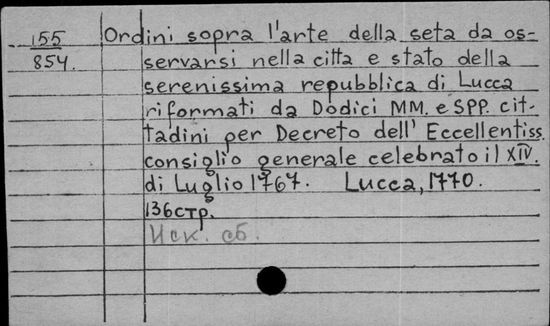 155 Ordini sopra l'arte della seta da os-
854. servarsi nella citta e stato della
serenissima repubblica di Lucca
riformati da Dodici MM. e SPP. cit-
tadini per Decreto dell' Eccellentiss.
consiglio generale celebrato il XIV.
di Luglio 1767. Lucca, 1770.
136 стр.
Иск. сб.